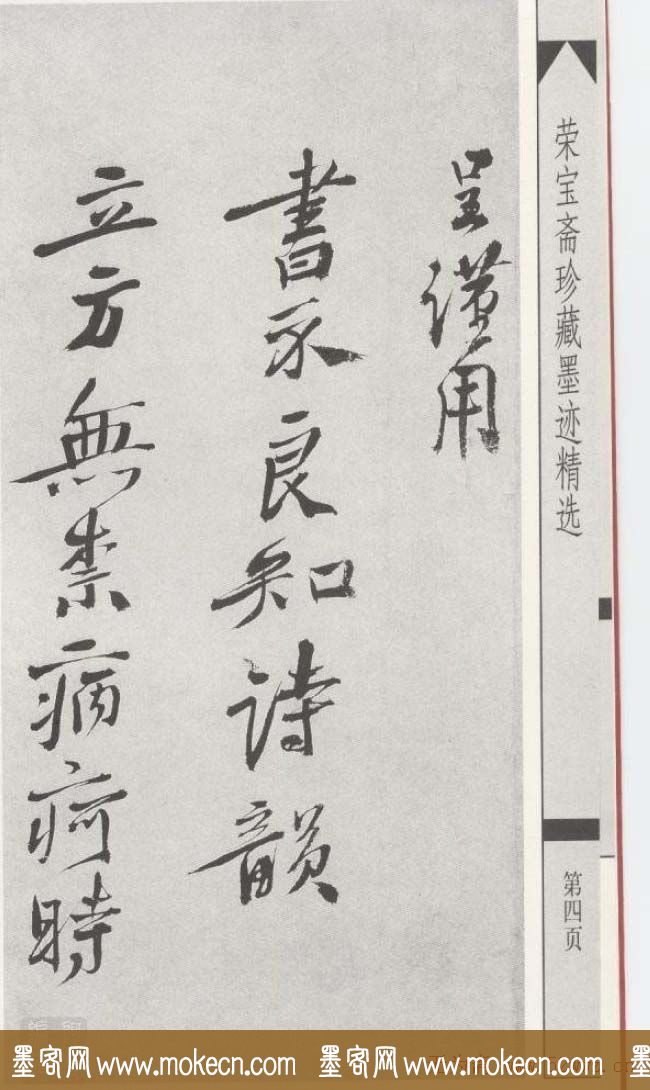 呈谨用
書永良知詩韻
立方無禁病疴時
荣宝斋珍藏墨迹精选
第四页
墨客网 www.mokecn.com 墨客网 www.mokecn.com